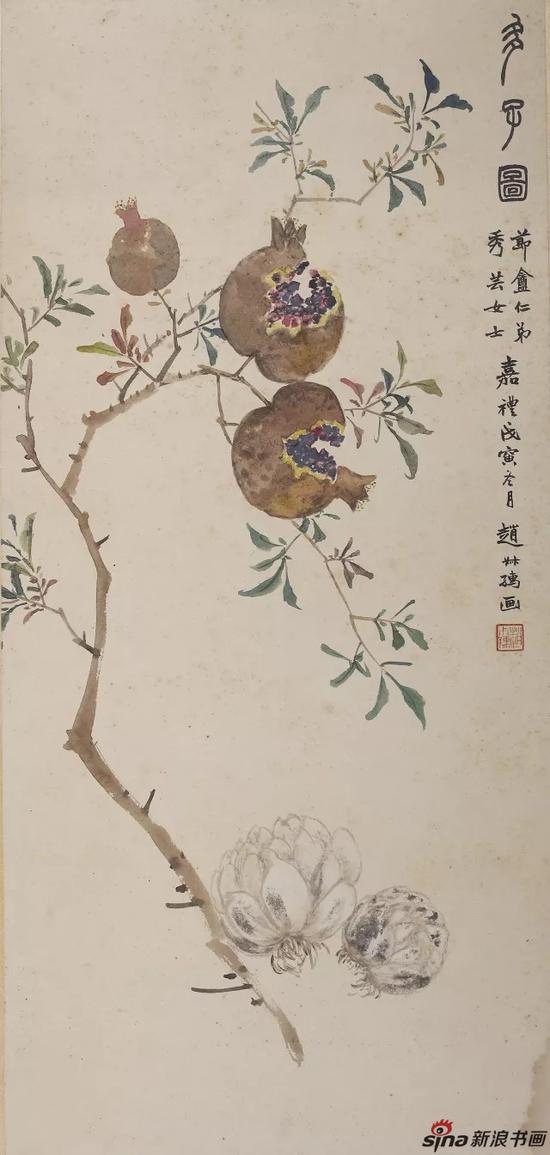 多子圖
莭盦仁弟
秀芸女士
嘉禮戊寅冬月 趙尗孺画
sina新浪书画